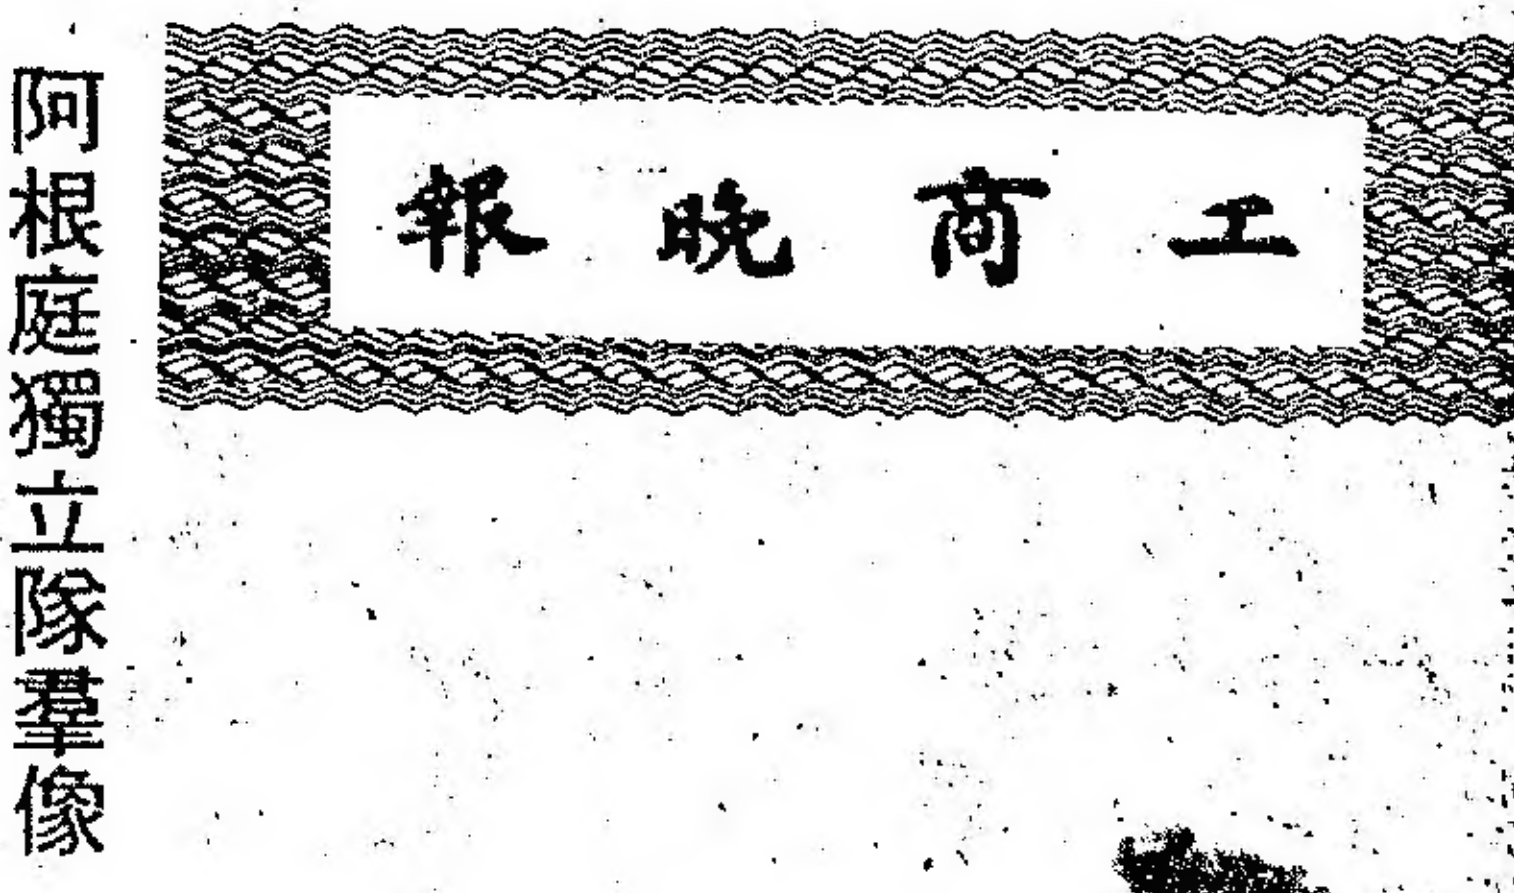 工商晚報
阿根庭獨立隊羣像